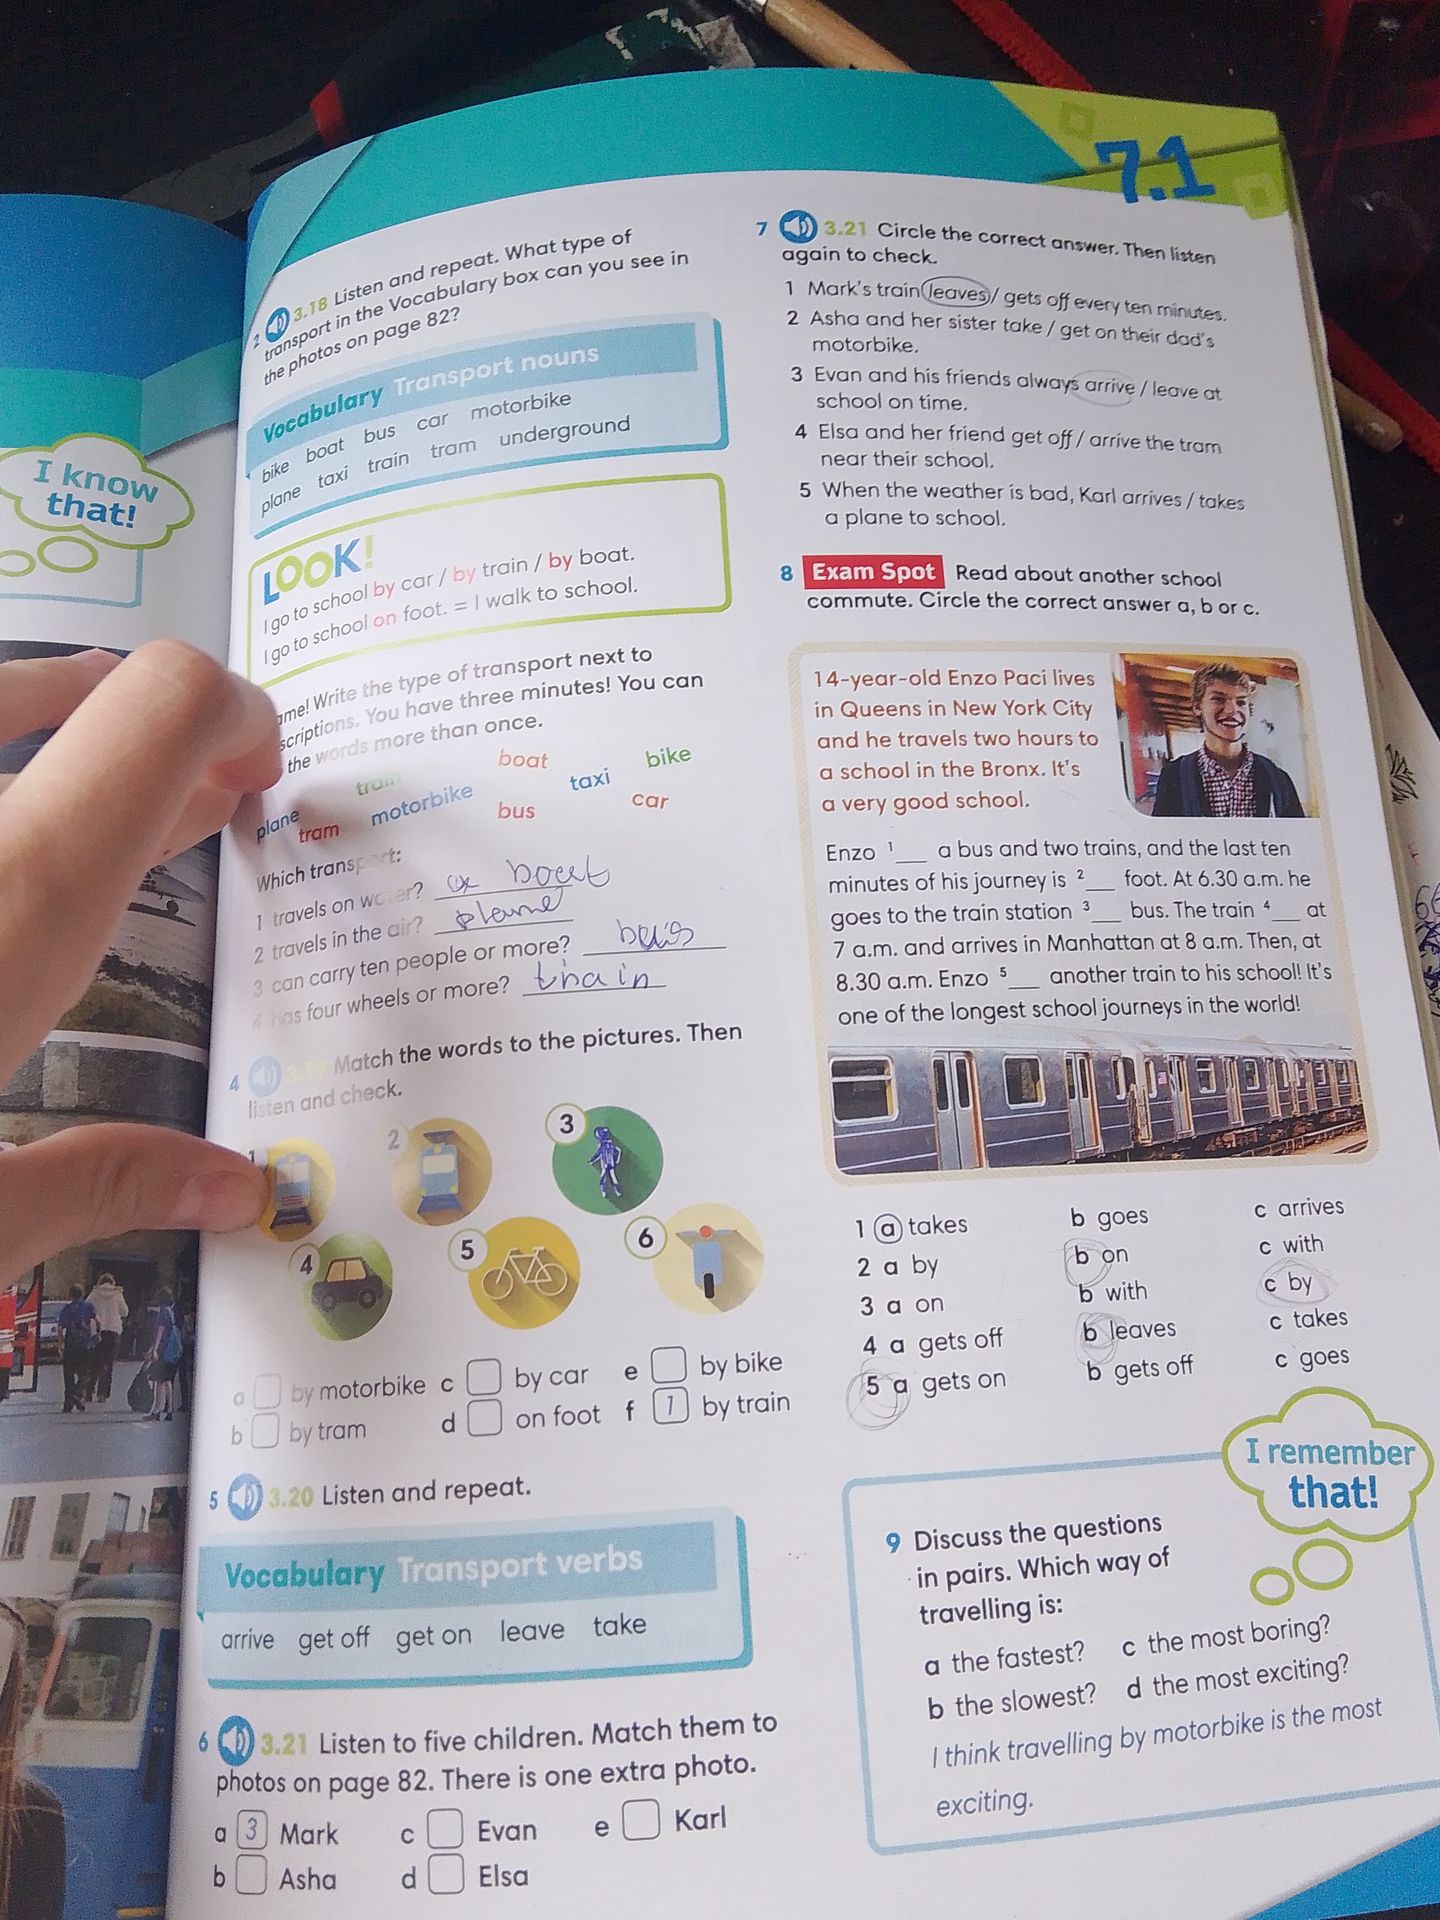 7.1
I know
that!
2 3.18 Listen and repeat. What type of
transport in the Vocabulary box can you see in
the photos on page 82?
Vocabulary Transport nouns
bike boat bus car motorbike
plane taxi train tram underground
LOOK!
I go to school by car / by train / by boat.
I go to school on foot. = I walk to school.
me! Write the type of transport next to
scriptions. You have three minutes! You can
the words more than once.
plane tram motorbike boat taxi bike
tram bus car
Which transport:
1 travels on water? boat
2 travels in the air? plane
3 can carry ten people or more? bus
4 has four wheels or more? train
4 3.19 Match the words to the pictures. Then
listen and check.
1 2 3
4 5 6
a by motorbike c by car e by bike
b by tram d on foot f 1 by train
5 3.20 Listen and repeat.
Vocabulary Transport verbs
arrive get off get on leave take
6 3.21 Listen to five children. Match them to
photos on page 82. There is one extra photo.
a 3 Mark c Evan e Karl
b Asha d Elsa
7 3.21 Circle the correct answer. Then listen
again to check.
1 Mark's train leaves / gets off every ten minutes.
2 Asha and her sister take / get on their dad's
motorbike.
3 Evan and his friends always arrive / leave at
school on time.
4 Elsa and her friend get off / arrive the tram
near their school.
5 When the weather is bad, Karl arrives / takes
a plane to school.
8 Exam Spot Read about another school
commute. Circle the correct answer a, b or c.
14-year-old Enzo Paci lives
in Queens in New York City
and he travels two hours to
a school in the Bronx. It's
a very good school.
Enzo 1__ a bus and two trains, and the last ten
minutes of his journey is 2__ foot. At 6.30 a.m. he
goes to the train station 3__ bus. The train 4__ at
7 a.m. and arrives in Manhattan at 8 a.m. Then, at
8.30 a.m. Enzo 5__ another train to his school! It's
one of the longest school journeys in the world!
1 a takes b goes c arrives
2 a by b on c with
3 a on b with c by
4 a gets off b leaves c takes
5 a gets on b gets off c goes
I remember
that!
9 Discuss the questions
in pairs. Which way of
travelling is:
a the fastest? c the most boring?
b the slowest? d the most exciting?
I think travelling by motorbike is the most
exciting.